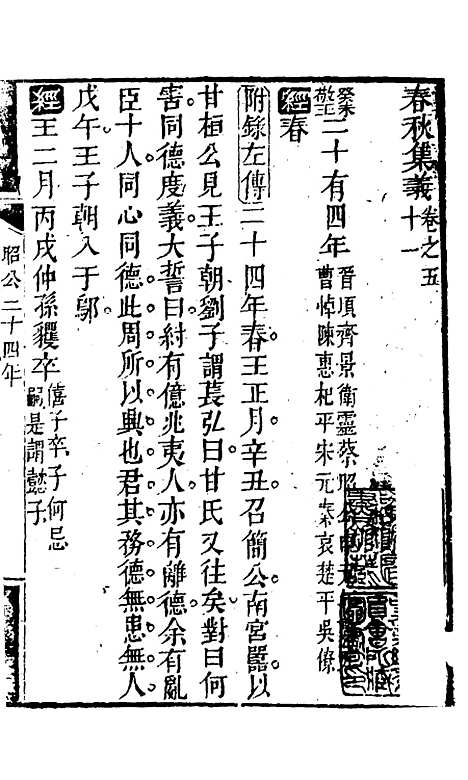 春秋集義十一卷之五
癸未敬王二十有四年晉頃齊景衛靈蔡昭曹悼陳惠杞平宋元秦哀楚平吳僚
經春
附錄左傳二十四年春王正月辛丑召簡公南宮嚚以
甘桓公見王子朝劉子謂萇弘曰甘氏又往矣對曰何
害同德度義大誓曰紂有億兆夷人亦有離德余有亂
臣十人同心同德此周所以興也君其務德無患無人
戊午王子朝入于鄔
經王二月丙戌仲孫貜卒僖子卒子何忌嗣是謂懿子
昭公二十四年